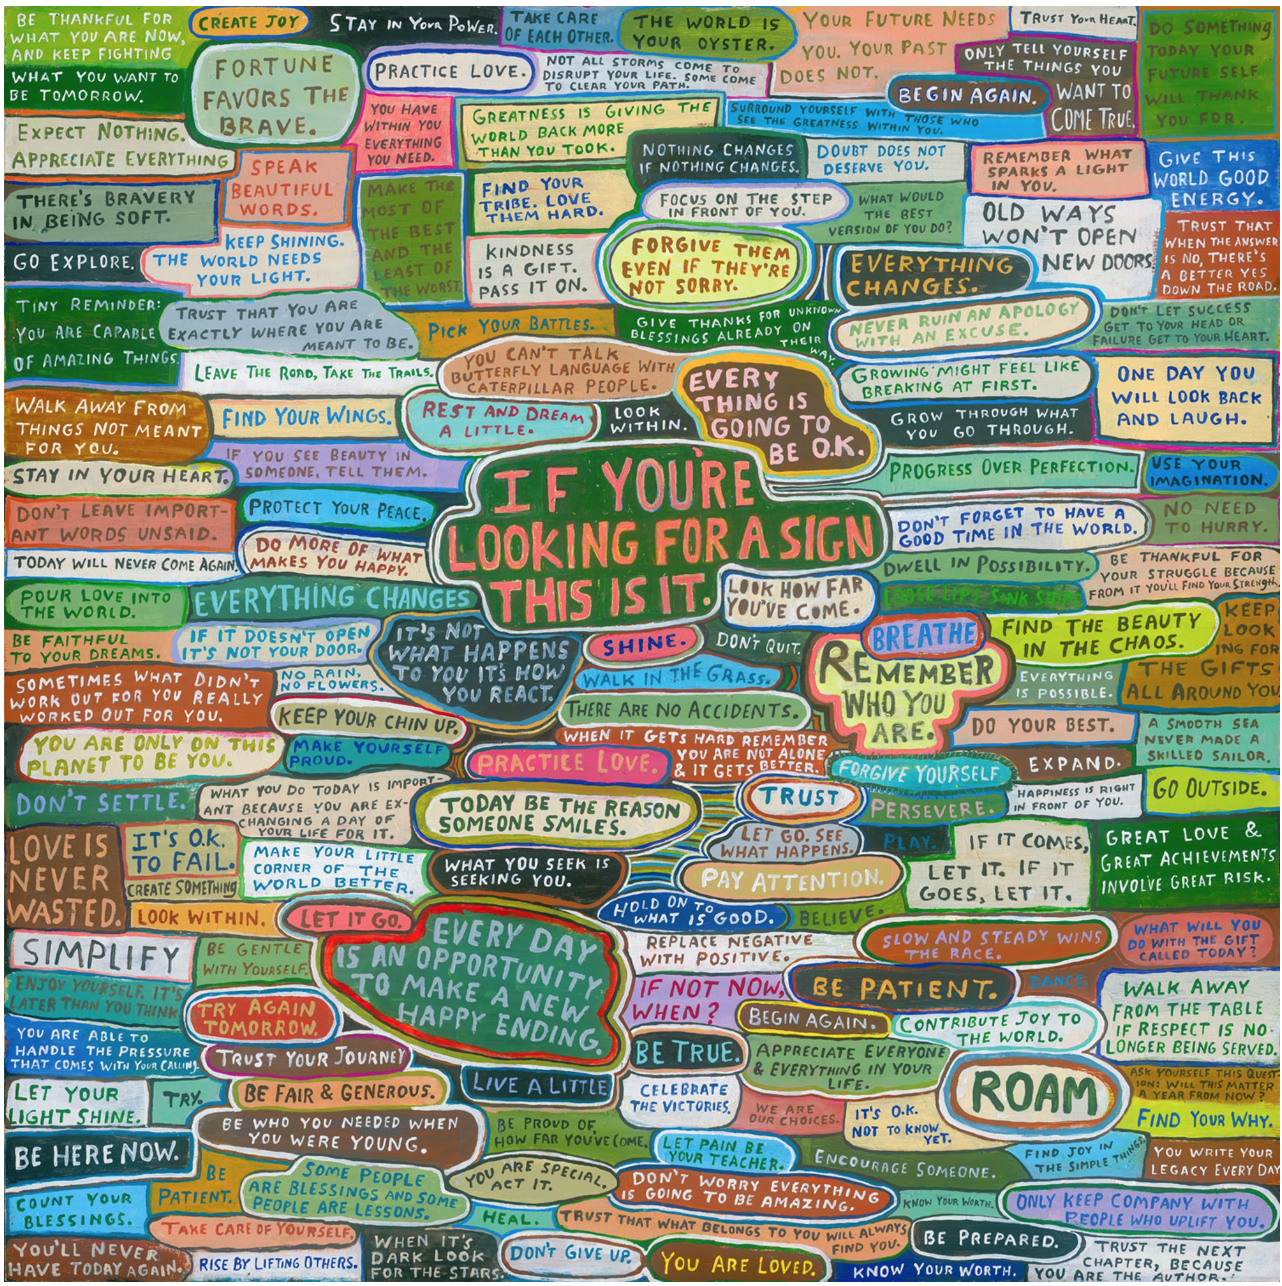 BE THANKFUL FOR
WHAT YOU ARE NOW,
AND KEEP FIGHTING
WHAT YOU WANT TO
BE TOMORROW.
CREATE JOY
STAY IN YOUR POWER.
TAKE CARE
OF EACH OTHER.
THE WORLD IS
YOUR OYSTER.
YOUR FUTURE NEEDS
YOU. YOUR PAST
DOES NOT.
TRUST YOUR HEART.
DO SOMETHING
TODAY YOUR
FUTURE SELF
WILL THANK
YOU FOR.
FORTUNE
FAVORS THE
BRAVE.
PRACTICE LOVE.
NOT ALL STORMS COME TO
DISRUPT YOUR LIFE. SOME COME
TO CLEAR YOUR PATH.
ONLY TELL YOURSELF
THE THINGS YOU
WANT TO
COME TRUE.
BEGIN AGAIN.
EXPECT NOTHING.
APPRECIATE EVERYTHING
YOU HAVE
WITHIN YOU
EVERYTHING
YOU NEED.
GREATNESS IS GIVING THE
WORLD BACK MORE
THAN YOU TOOK.
SURROUND YOURSELF WITH THOSE WHO
SEE THE GREATNESS WITHIN YOU.
NOTHING CHANGES
IF NOTHING CHANGES.
DOUBT DOES NOT
DESERVE YOU.
REMEMBER WHAT
SPARKS A LIGHT
IN YOU.
GIVE THIS
WORLD GOOD
ENERGY.
SPEAK
BEAUTIFUL
WORDS.
THERE'S BRAVERY
IN BEING SOFT.
MAKE THE
MOST OF
THE BEST
AND THE
LEAST OF
THE WORST.
FIND YOUR
TRIBE. LOVE
THEM HARD.
FOCUS ON THE STEP
IN FRONT OF YOU.
WHAT WOULD
THE BEST
VERSION OF YOU DO?
OLD WAYS
WON'T OPEN
NEW DOORS.
TRUST THAT
WHEN THE ANSWER
IS NO, THERE'S
A BETTER YES
DOWN THE ROAD.
GO EXPLORE.
KEEP SHINING.
THE WORLD NEEDS
YOUR LIGHT.
KINDNESS
IS A GIFT.
PASS IT ON.
FORGIVE THEM
EVEN IF THEY'RE
NOT SORRY.
EVERYTHING
CHANGES.
TINY REMINDER:
YOU ARE CAPABLE
OF AMAZING THINGS.
TRUST THAT YOU ARE
EXACTLY WHERE YOU ARE
MEANT TO BE.
PICK YOUR BATTLES.
GIVE THANKS FOR UNKNOWN
BLESSINGS ALREADY ON
THEIR
WAY.
NEVER RUIN AN APOLOGY
WITH AN EXCUSE.
DON'T LET SUCCESS
GET TO YOUR HEAD OR
FAILURE GET TO YOUR HEART.
LEAVE THE ROAD, TAKE THE TRAILS.
YOU CAN'T TALK
BUTTERFLY LANGUAGE WITH
CATERPILLAR PEOPLE.
EVERY
THING IS
GOING TO
BE O.K.
GROWING MIGHT FEEL LIKE
BREAKING AT FIRST.
ONE DAY YOU
WILL LOOK BACK
AND LAUGH.
WALK AWAY FROM
THINGS NOT MEANT
FOR YOU.
FIND YOUR WINGS.
REST AND DREAM
A LITTLE.
LOOK
WITHIN.
GROW THROUGH WHAT
YOU GO THROUGH.
IF YOU SEE BEAUTY IN
SOMEONE, TELL THEM.
STAY IN YOUR HEART.
IF YOU'RE
LOOKING FOR A SIGN
THIS IS IT.
PROGRESS OVER PERFECTION.
USE YOUR
IMAGINATION.
DON'T LEAVE IMPORT-
ANT WORDS UNSAID.
PROTECT YOUR PEACE.
DON'T FORGET TO HAVE A
GOOD TIME IN THE WORLD.
NO NEED
TO HURRY.
TODAY WILL NEVER COME AGAIN.
DO MORE OF WHAT
MAKES YOU HAPPY.
DWELL IN POSSIBILITY.
BE THANKFUL FOR
YOUR STRUGGLE BECAUSE
FROM IT YOU'LL FIND YOUR STRENGTH.
POUR LOVE INTO
THE WORLD.
EVERYTHING CHANGES
LOOK HOW FAR
YOU'VE COME.
LOOSE LIPS SINK SHIPS
KEEP
LOOK
ING FOR
THE GIFTS
ALL AROUND YOU
BE FAITHFUL
TO YOUR DREAMS.
IF IT DOESN'T OPEN
IT'S NOT YOUR DOOR.
IT'S NOT
WHAT HAPPENS
TO YOU IT'S HOW
YOU REACT.
SHINE.
DON'T QUIT.
BREATHE
FIND THE BEAUTY
IN THE CHAOS.
REMEMBER
WHO YOU
ARE.
SOMETIMES WHAT DIDN'T
WORK OUT FOR YOU REALLY
WORKED OUT FOR YOU.
NO RAIN,
NO FLOWERS.
WALK IN THE GRASS.
EVERYTHING
IS POSSIBLE.
KEEP YOUR CHIN UP.
THERE ARE NO ACCIDENTS.
DO YOUR BEST.
A SMOOTH SEA
NEVER MADE A
SKILLED SAILOR.
YOU ARE ONLY ON THIS
PLANET TO BE YOU.
MAKE YOURSELF
PROUD.
PRACTICE LOVE.
WHEN IT GETS HARD REMEMBER
YOU ARE NOT ALONE
& IT GETS BETTER.
FORGIVE YOURSELF
EXPAND.
DON'T SETTLE.
WHAT YOU DO TODAY IS IMPORT-
ANT BECAUSE YOU ARE EX-
CHANGING A DAY OF
YOUR LIFE FOR IT.
TODAY BE THE REASON
SOMEONE SMILES.
TRUST
PERSEVERE.
HAPPINESS IS RIGHT
IN FRONT OF YOU.
GO OUTSIDE.
LOVE IS
NEVER
WASTED.
IT'S O.K.
TO FAIL.
CREATE SOMETHING
MAKE YOUR LITTLE
CORNER OF THE
WORLD BETTER.
WHAT YOU SEEK IS
SEEKING YOU.
LET GO. SEE
WHAT HAPPENS.
PLAY.
IF IT COMES,
LET IT. IF IT
GOES, LET IT.
GREAT LOVE &
GREAT ACHIEVEMENTS
INVOLVE GREAT RISK.
PAY ATTENTION.
LOOK WITHIN.
LET IT GO.
HOLD ON TO
WHAT IS GOOD.
BELIEVE.
SIMPLIFY
BE GENTLE
WITH YOURSELF.
EVERY DAY
IS AN OPPORTUNITY
TO MAKE A NEW
HAPPY ENDING.
REPLACE NEGATIVE
WITH POSITIVE.
SLOW AND STEADY WINS
THE RACE.
WHAT WILL YOU
DO WITH THE GIFT
CALLED TODAY?
ENJOY YOURSELF. IT'S
LATER THAN YOU THINK
TRY AGAIN
TOMORROW.
IF NOT NOW,
WHEN?
BE PATIENT.
DANCE.
WALK AWAY
FROM THE TABLE
IF RESPECT IS NO-
LONGER BEING SERVED.
BEGIN AGAIN.
CONTRIBUTE JOY TO
THE WORLD.
YOU ARE ABLE TO
HANDLE THE PRESSURE
THAT COMES WITH YOUR CALLING.
TRUST YOUR JOURNEY
BE TRUE.
APPRECIATE EVERYONE
& EVERYTHING IN YOUR
LIFE.
ROAM
ASK YOURSELF THIS QUEST-
ION: WILL THIS MATTER
A YEAR FROM NOW?
LET YOUR
LIGHT SHINE.
TRY.
BE FAIR & GENEROUS.
LIVE A LITTLE
CELEBRATE
THE VICTORIES.
WE ARE
OUR CHOICES.
IT'S O.K.
NOT TO KNOW,
YET.
FIND YOUR WHY.
BE WHO YOU NEEDED WHEN
YOU WERE YOUNG.
BE PROUD OF
HOW FAR YOU'VE COME.
LET PAIN BE
YOUR TEACHER.
BE HERE NOW.
ENCOURAGE SOMEONE.
FIND JOY IN
THE SIMPLE THINGS.
YOU WRITE YOUR
LEGACY EVERY DAY
BE
PATIENT.
SOME PEOPLE
ARE BLESSINGS AND SOME
PEOPLE ARE LESSONS.
YOU ARE SPECIAL,
ACT IT.
DON'T WORRY EVERYTHING
IS GOING TO BE AMAZING.
KNOW YOUR WORTH.
ONLY KEEP COMPANY WITH
PEOPLE WHO UPLIFT YOU.
COUNT YOUR
BLESSINGS.
TAKE CARE OF YOURSELF.
HEAL.
TRUST THAT WHAT BELONGS TO YOU WILL ALWAYS
FIND YOU.
BE PREPARED.
YOU'LL NEVER
HAVE TODAY AGAIN.
RISE BY LIFTING OTHERS.
WHEN IT'S
DARK LOOK
FOR THE STARS.
DON'T GIVE UP.
YOU ARE LOVED.
KNOW YOUR WORTH.
TRUST THE NEXT
CHAPTER, BECAUSE
YOU ARE THE AUTHOR.